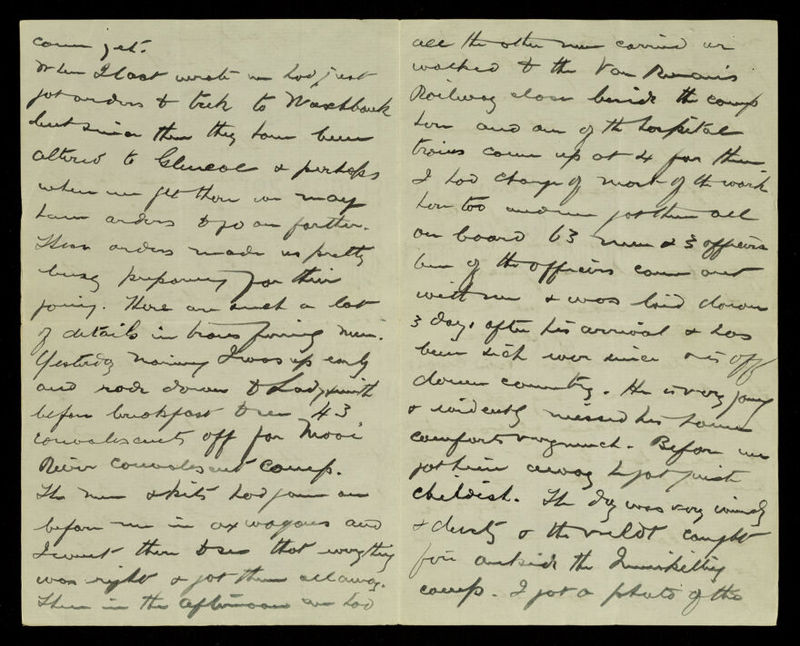 come yet.
When I last wrote we had just
got orders to trek to Waschbank
but since then they have been
altered to Glencoe & perhaps
when we get there we may
have orders to go on farther.
These orders made us pretty
busy preparing for their
going. There are such a lot
of details in transferring men.
Yesterday morning I was up early
and rode down to Ladysmith
before breakfast to see 43
convalescents off for Mooi
River convalescent camp.
The men & kits had gone on
before me in ox wagons and
I went there to see that everything
was right & got them all away.
Then in the afternoon we had
all the other men carried or
walked to the Van Reenan's
Railway close beside the camp
here and one of the hospital
trains came up at 4 for them
I had charge of most of the work
here too and we got them all
on board 63 men & 3 officers
one of the officers came out
with me & was laid down
3 days after his arrival & has
been sick ever since & is off
down country. He is very young
& evidently missed his home
comforts very much. Before we
got him away he got quite
childish. The day was very windy
& dusty & the veldt caught
fire outside the Inniskilling
camp. I got a photo of the